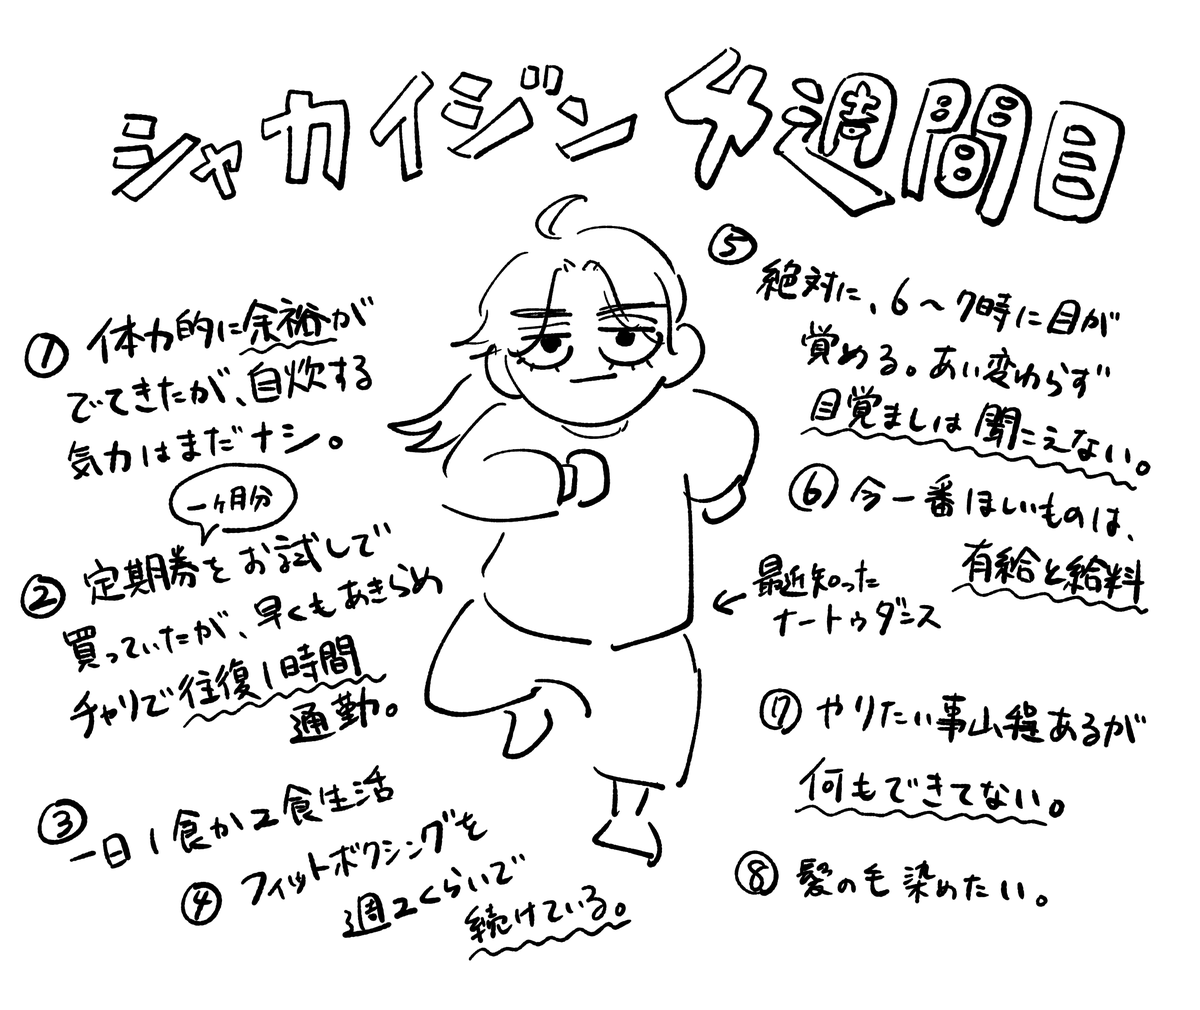 シャカイジン4週間目
① 体力的に余裕が
でてきたが、自炊する
気力はまだナシ。
一ヶ月分
② 定期券をお試しで
買っていたが、早くもあきらめ
チャリで往復1時間
通勤。
③ 一日1食か2食生活
④ フィットボクシングを
週2くらいで
続けている。
⑤ 絶対に、6〜7時に目が
覚める。あい変わらず
目覚ましは聞こえない。
⑥ 今一番ほしいものは、
有給と給料
最近知った
ナートゥダンス
⑦ やりたい事山程あるが
何もできてない。
⑧ 髪の毛染めたい。